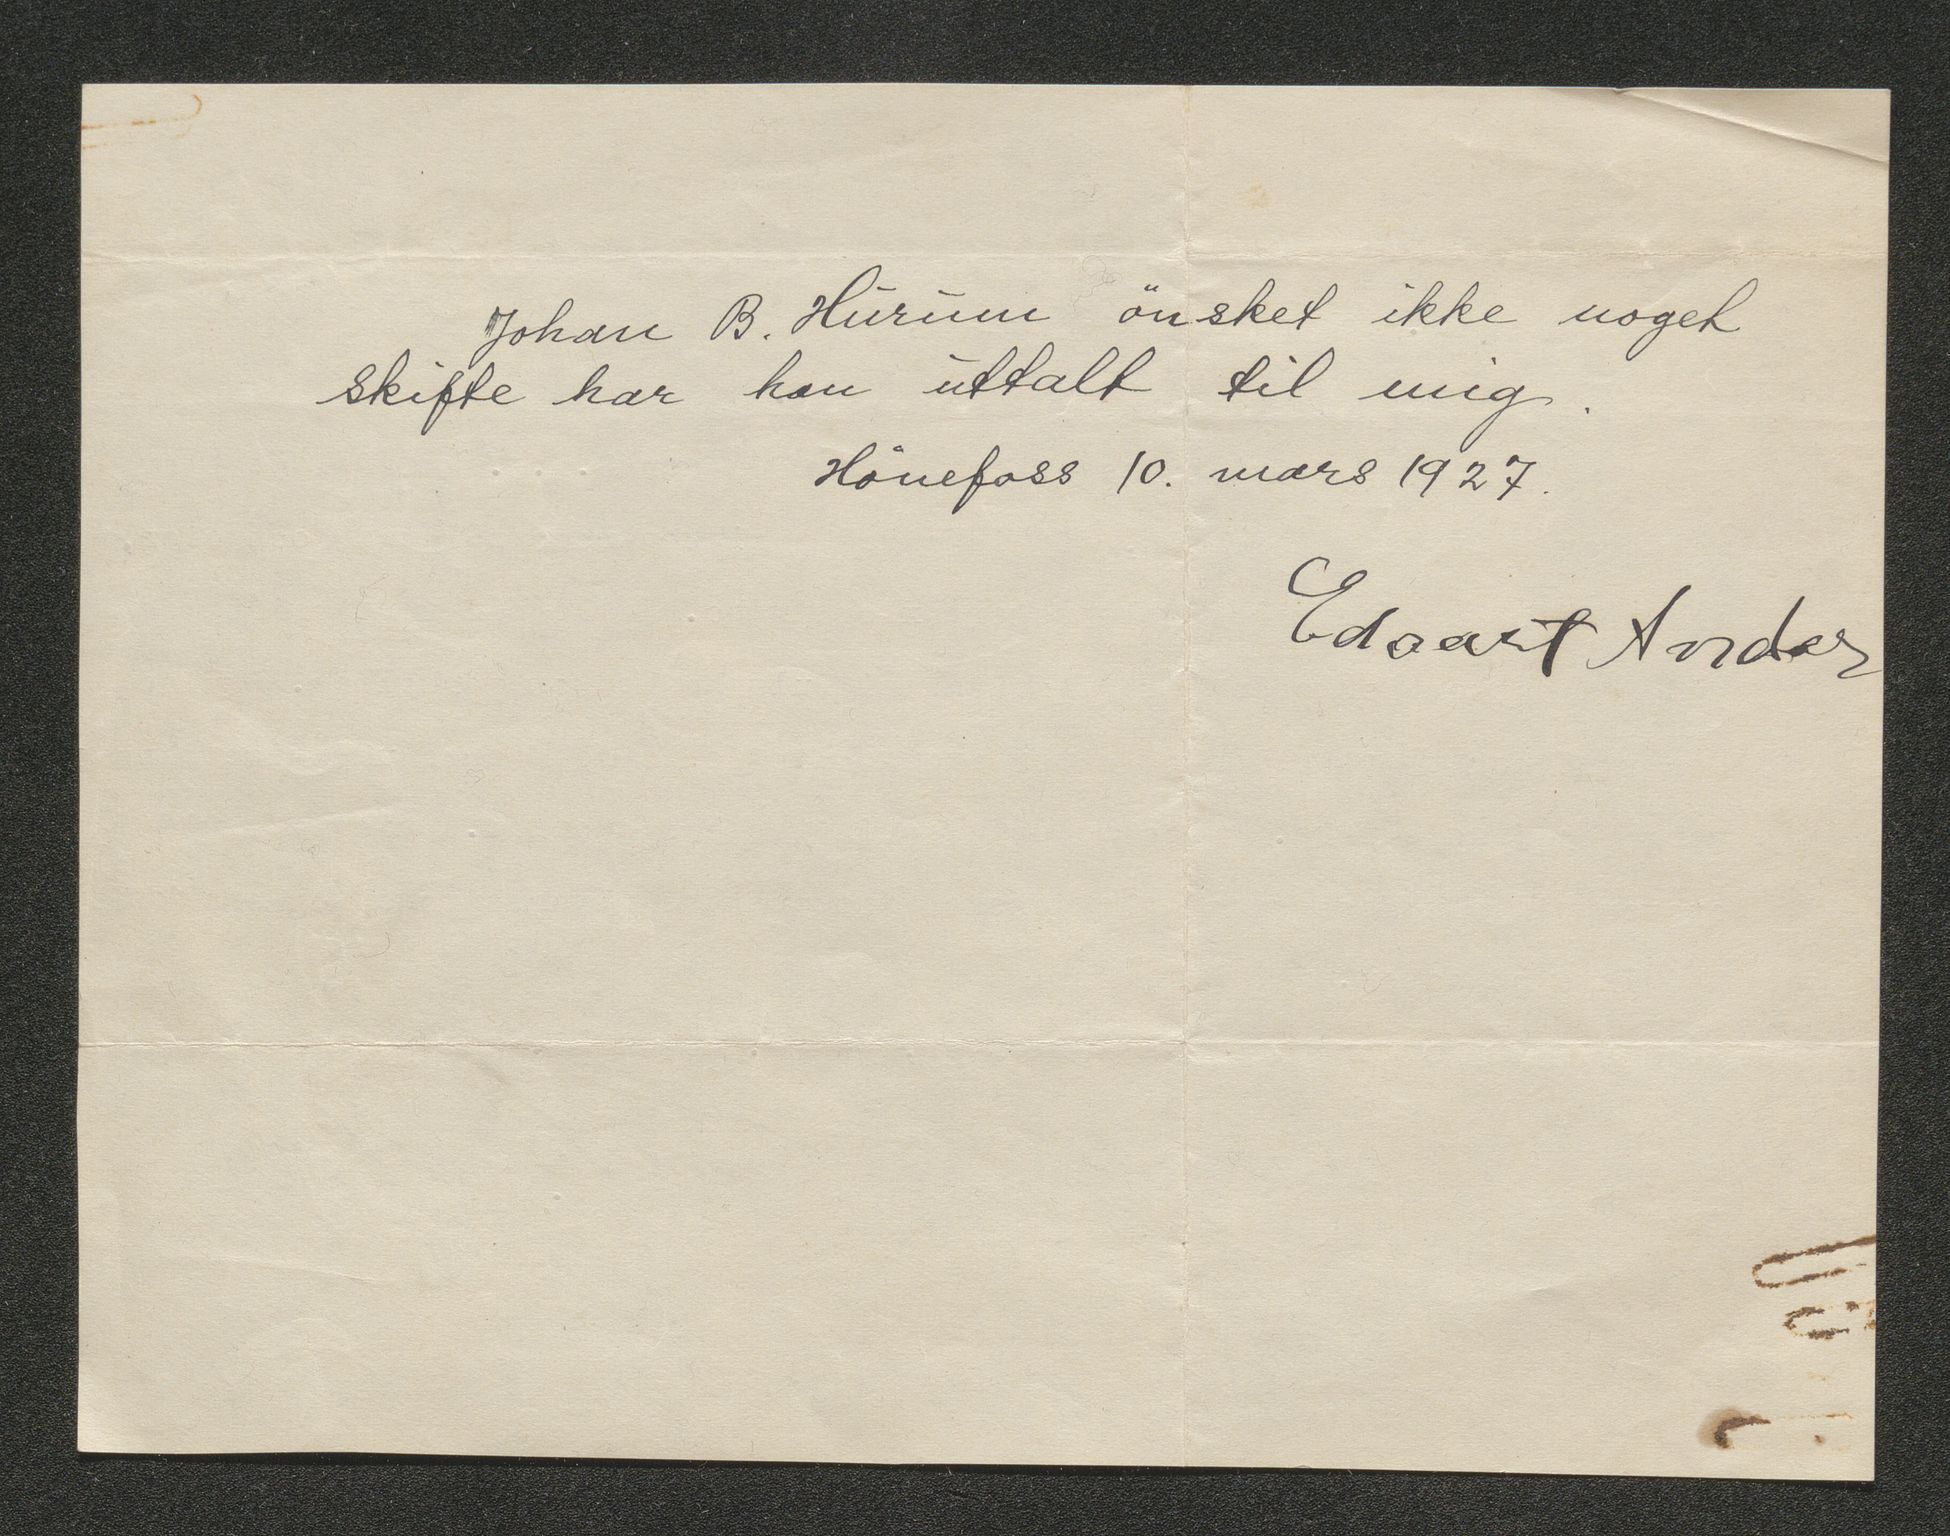 Johan B. Hurum önsket ikke noget
skifte har han uttalt til mig.
Hönefoss 10. mars 1927.
Edvart Ander